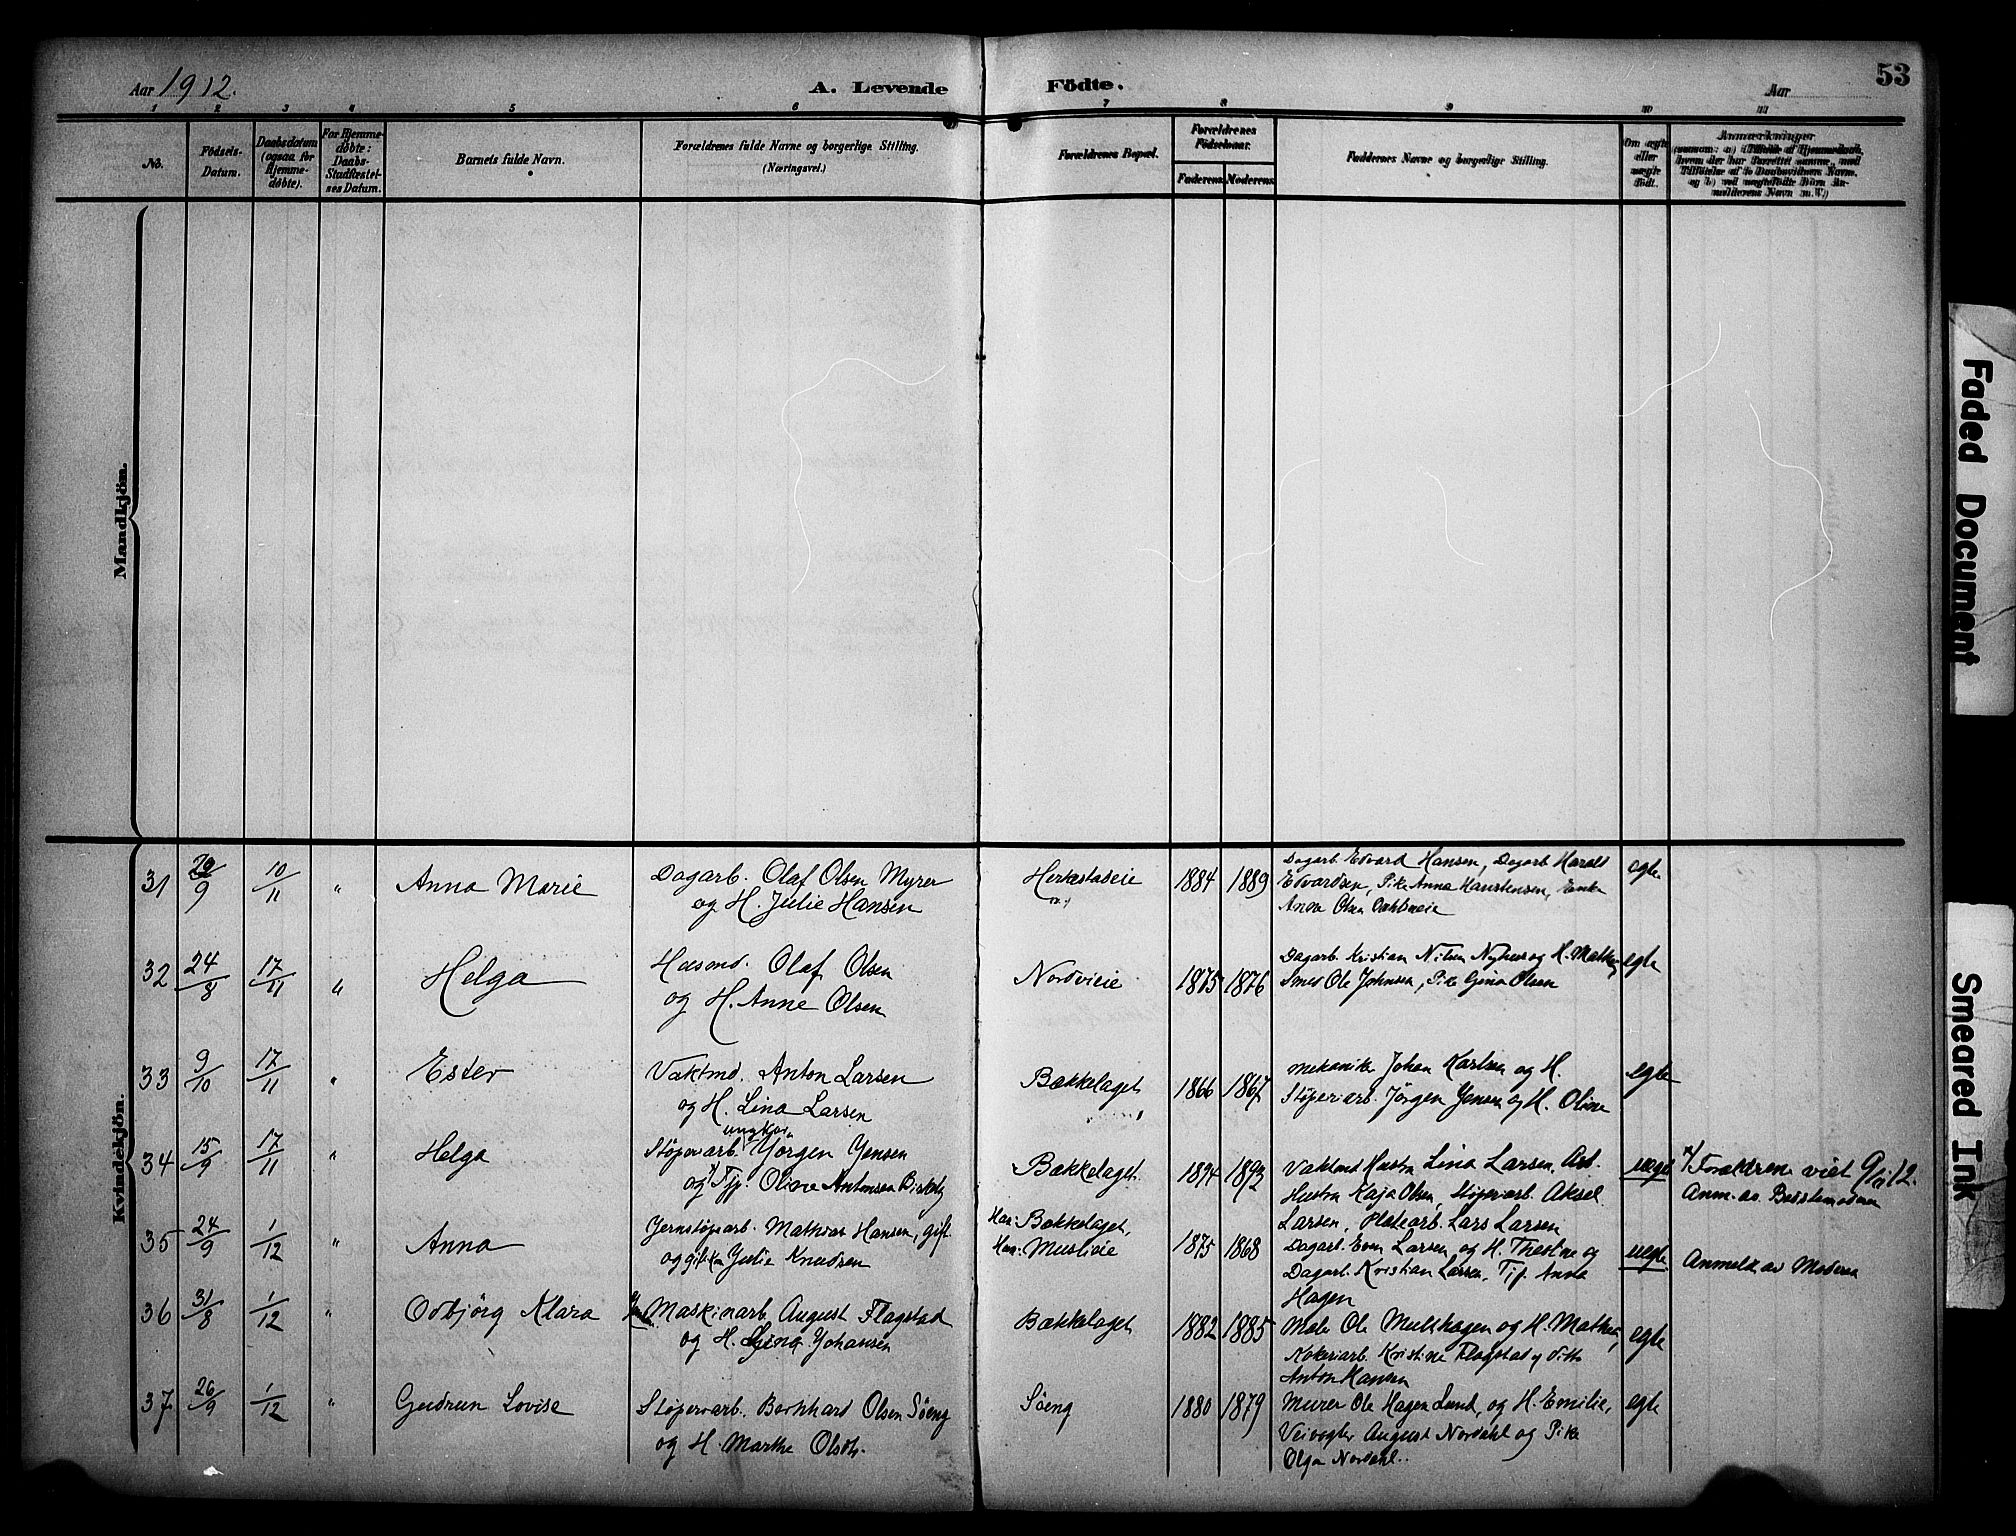 Aar 1912.
A. Levende Födte.
Aar
53
1 2 3 4 5 6 7 8 9 10 11
No.
Födsels-
Datum.
Daabsdatum
(ogsaa for
Hjemme-
døbte).
For Hjemme-
døbte:
Daabs-
Stadfæstel-
ses Datum.
Barnets fulde Navn.
Forældrenes fulde Navne og borgerlige Stilling.
(Næringsvei.)
Forældrenes Bopæl.
Forældrenes
Födselsaar.
Faderens
Moderens
Faddernes Navne og borgerlige Stilling.
Om ægte
eller
uægte
født.
Anmærkninger
Mandkjön.
Kvindekjön.
31 20/9 10/11 " Anna Marie
Dagarb. Olaf Olsen Myrer
og H. Julie Hansen
1884 1889
Dagarb. Edvard Hansen, Dagarb. Harald
Edvardsen, Pike Anna
Anna Olsen
egte
32 24/8 17/11 " Helga
Husmd. Olaf Olsen
og H. Anne Olsen
Nordvieie
1875 1876
Dagarb. Kristian Nilsen Nyhus og H. Mathea,
Smed Ole Johnsen, Pike Gina Olsen
egte
33 9/10 17/11 " Ester
Vaktmd. Anton Larsen
og H. Lina Larsen
Bækkelaget
1866 1867
Mekaniker Johan Karlsen og H.
Støperiarb. Jørgen Jensen og H. Oline
egte
34 15/9 17/11 " Helga
ungkar
Støperiarb. Jørgen Jensen
og Tjp. Oline Antonsen
Bækkelaget
1894 1893
Vaktmd Hustru Lina Larsen,
Hustru Kaja Olsen, Støperiarb. Aksel
Larsen, Platearb. Lars Larsen
uegte
Forældrene viet 9/11 12.
Anm. av Bestemoderen
35 24/9 1/12 " Anna
Jernstøperiarb. Mathias Hansen, gift
og gift Julie Knudsen
Han: Bækkelaget,
Hun: Muslieie
1875 1868
Dagarb. Even Larsen og H. Thestine og
Dagarb. Kristian Larsen, Tjp. Anna
Hagen
uegte
Anmeldt av Moderen
36 31/8 1/12 " Odbjörg Klara
Maskinarb. August Flagstad
og H. Gina Johansen
Bækkelaget
1882 1885
Maler Ole Mælhagen og H. Mathea,
Kristine Flagstad
Anton Hansen
egte
37 26/9 1/12 " Gudrun Lovise
Støperiarb. Bernhard Olsen Söeng
og H. Marthe Olsdtr.
Söeng
1880 1879
Murer Ole Hagen Lund, og H. Emilie,
Veivogter August Nordahl og Pike
Olga Nordahl.
egte
Faded Document
Smeared Ink